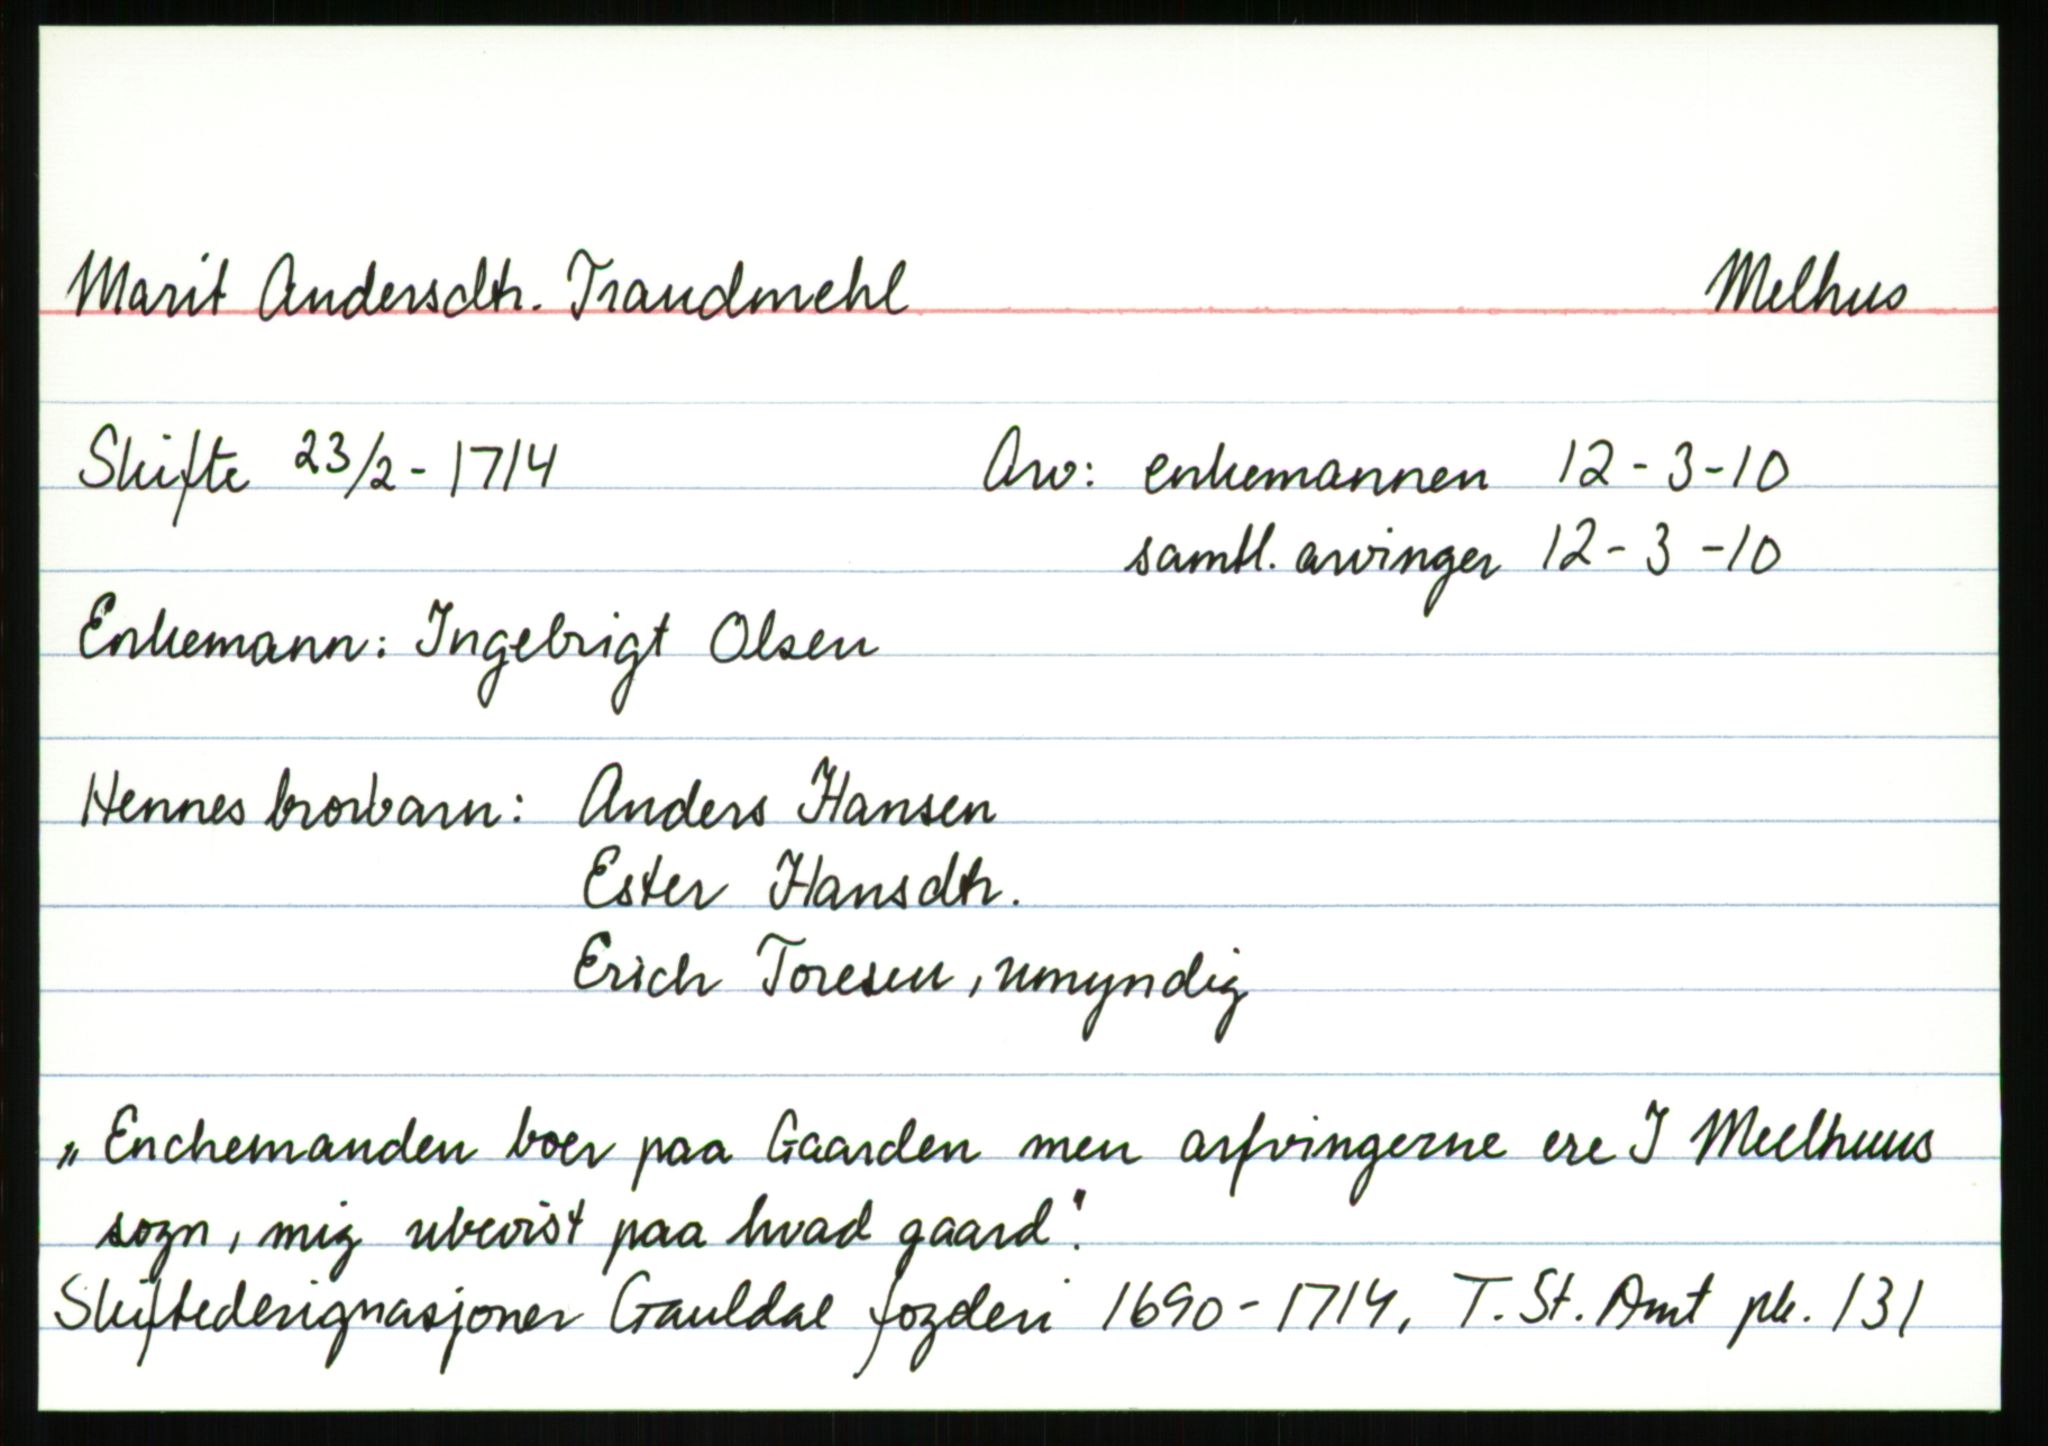 Marit Andersdtr. Traudmehl Melhus
Skifte 23/2 - 1714 Arv: enkemannen 12 - 3 - 10
samtl. arvinger 12 - 3 - 10
Enkemann: Ingebrigt Olsen
Hennes brorbarn: Anders Hansen
Ester Hansdtr.
Erich Toresen, umyndig
„Enchemanden boer paa Gaarden men arfvingerne ere I Meelhuus
sogn, mig ubevist paa hvad gaard".
Skiftedesignasjoner Gauldal fogderi 1690 - 1714, T. St. Amt pk. 131